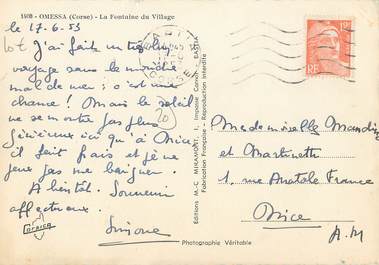 1908 - OMESSA (Corse) - La Fontaine du Village
le 17.6.53
J'ai fait un
voyage sans le moindre
mal de mer ; c'est une
chance ! Mais le soleil
ne se montre pas plus
ici qu'à Nice
il fait frais et je ne
peux pas me baigner.
A bientôt. Souvenir
affectueux.
Simone
Corsica
Photographie Véritable
Editions M.-C. MIRAMONT, 1, Impasse Canon - BASTIA
Fabrication Française - Reproduction Interdite
RF
Mesdemoiselle
et Martinetti
1, rue Anatole France
Nice
A.M